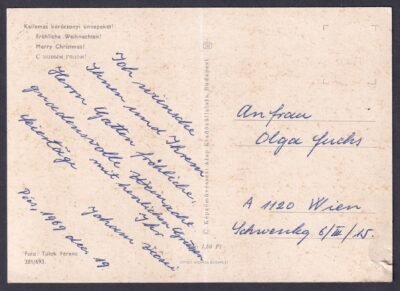 Kellemes karácsonyi ünnepeket!
Fröhliche Weihnachten!
Merry Christmas!
С новым годом!
Ich wünsche
Ihnen und Ihrem
Herrn Gatten fröhliche,
gnadensvolle Weinacht
Feiertäge
mit herzlichen Grüssen
Ihr
Johann
1969 den 19
Foto: Tulok Ferenc
381/693
Képzőművészeti Alap Kiadóvállalata Budapest
1,50 Ft
An Frau
Olga Fuchs
A 1120 Wien
6/III/15